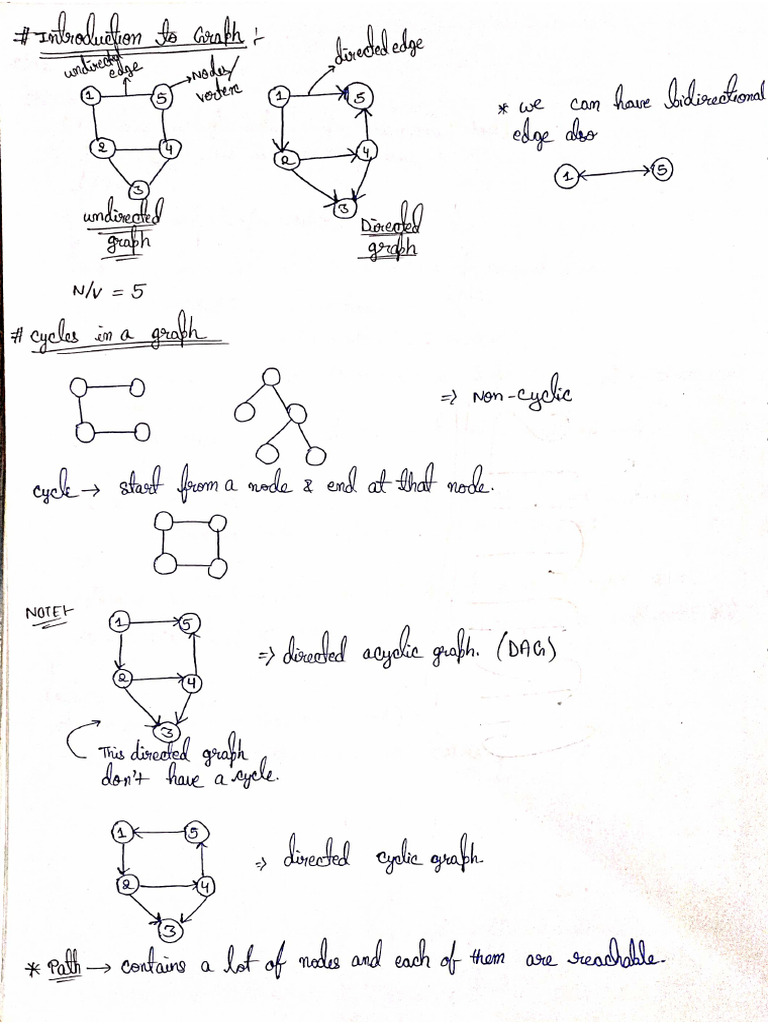 # Introduction to Graph :-
undirected edge
Nodes/
vertex
directed edge
1 5
2 4
3
1 5
2 4
3
* we can have bidirectional
edge also
1 5
undirected
graph
Directed
graph
N/V = 5
# Cycles in a graph
=> Non-cyclic
cycle → start from a node & end at that node.
NOTE:-
1 5
2 4
3
=> directed acyclic graph. (DAG)
This directed graph
don't have a cycle.
1 5
2 4
3
=> directed cyclic graph.
* Path → contains a lot of nodes and each of them are reachable.